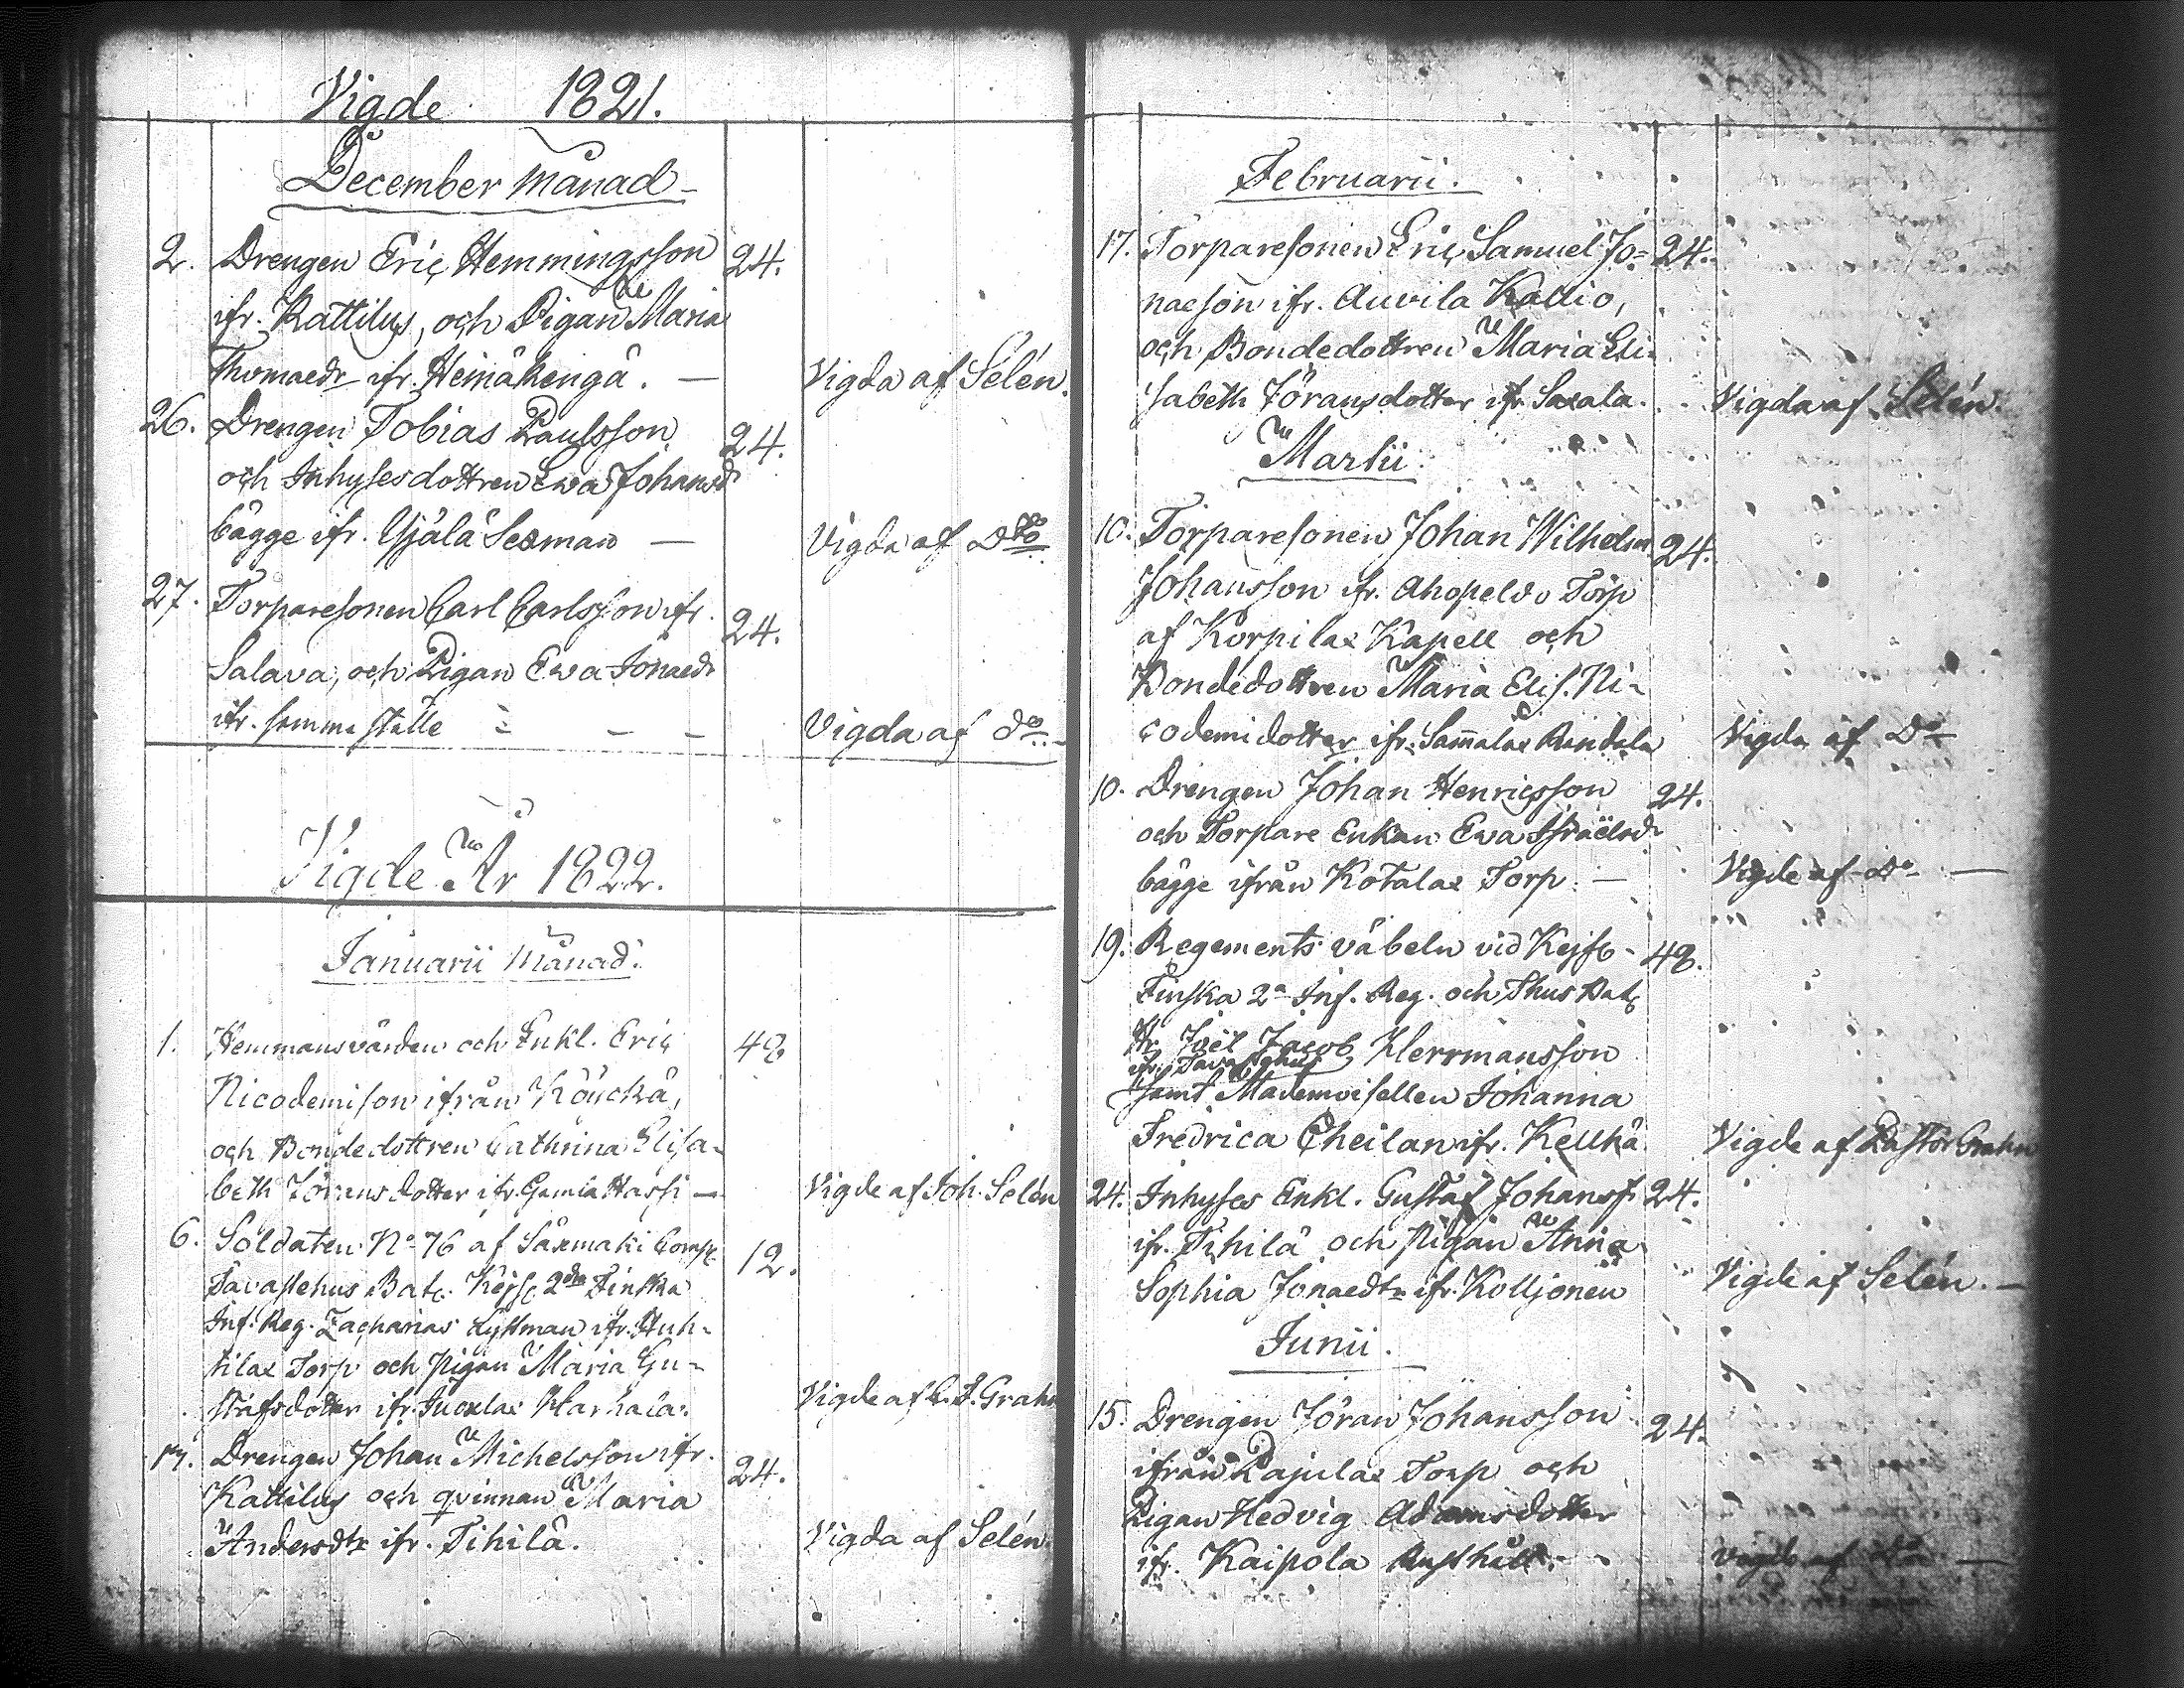 Vigde 1821.
December månad
2. Drengen Eric Hemmingsson 24.
ifr. Kattilus, och Pigan Maria
Thomaedr ifr. Heinäkengä. — Vigda af Selén.
26. Drengen Tobias Paulsson 24.
och Inhysesdottren Ewa Johansd
bägge ifr. Yjälä Sexman — Vigda af Dito
27. Torparesonen Carl Carlsson ifr. 24.
Salava, och Pigan Ewa Jonaedr
ifr. samma ställe Vigda af do
Vigde År 1822.
Januarii månad.
1. Hemmansvärden och Enkl. Eric 48
Nicodemison ifrån Köyckä,
och Bondedottren Cathrina Elisa-
beth Jöransdotter ifr. Gamla Hassi — Vigde af Joh. Selén
6. Soldaten No 76 af Säxmäki Comp. 12.
Tavastehus Bat. Kejs. 2dra Finska
Inf. Reg. Zacharias Lyttman ifr. Huh-
tilax Torp och Pigan Maria Gu-
stafsdotter ifr. Harhala. Vigde af C. F. Grahn
Drengen Johan Michelsson ifr. 24.
Kattilus och qvinnan Maria
Andersdtr ifr. Tihilä. Vigda af Selén
Februarii.
17. Torparesonen Eric Samuel Jo- 24.
naeson ifr. Auvila Kallio,
och Bondedottren Maria Eli-
sabeth Jöransdotter ifr. Saxala. Vigda af Selén.
Martii.
10. Torparesonen Johan Wilhelm 24.
Johansson ifr. Ahopeldo Torp
af Korpilax Kapell och
Bondedottren Maria Elis. Ni-
codemidotter ifr. Sammalax Rindala Vigda af Do
10. Drengen Johan Henricsson 24.
och Torpare Enkan Ewa Israëlsd
bägge ifrån Kotalax Torp. — Vigde af Do —
19. Regements väbeln vid Kejs. 48.
Finska 2a Inf. Reg. och Thus Bat.
Hr Joël Jacob Herrmansson
ifr. Tavastehus
samt Mademoisellen Johanna
Fredrica Cheilan ifr. Kellhä Vigde af Pastor Grahn
24. Inhyses Enkl. Gustaf Johanss. 24.
ifr. Tihilä och Pigan Anna
Sophia Jonaedtr ifr. Kolljonen Vigde af Selén. —
Junii.
15. Drengen Jöran Johansson 24.
ifrån Pajulax Torp och
Pigan Hedvig Adamsdotter
ifr. Kaipola Rusthåll. Vigde af Do —